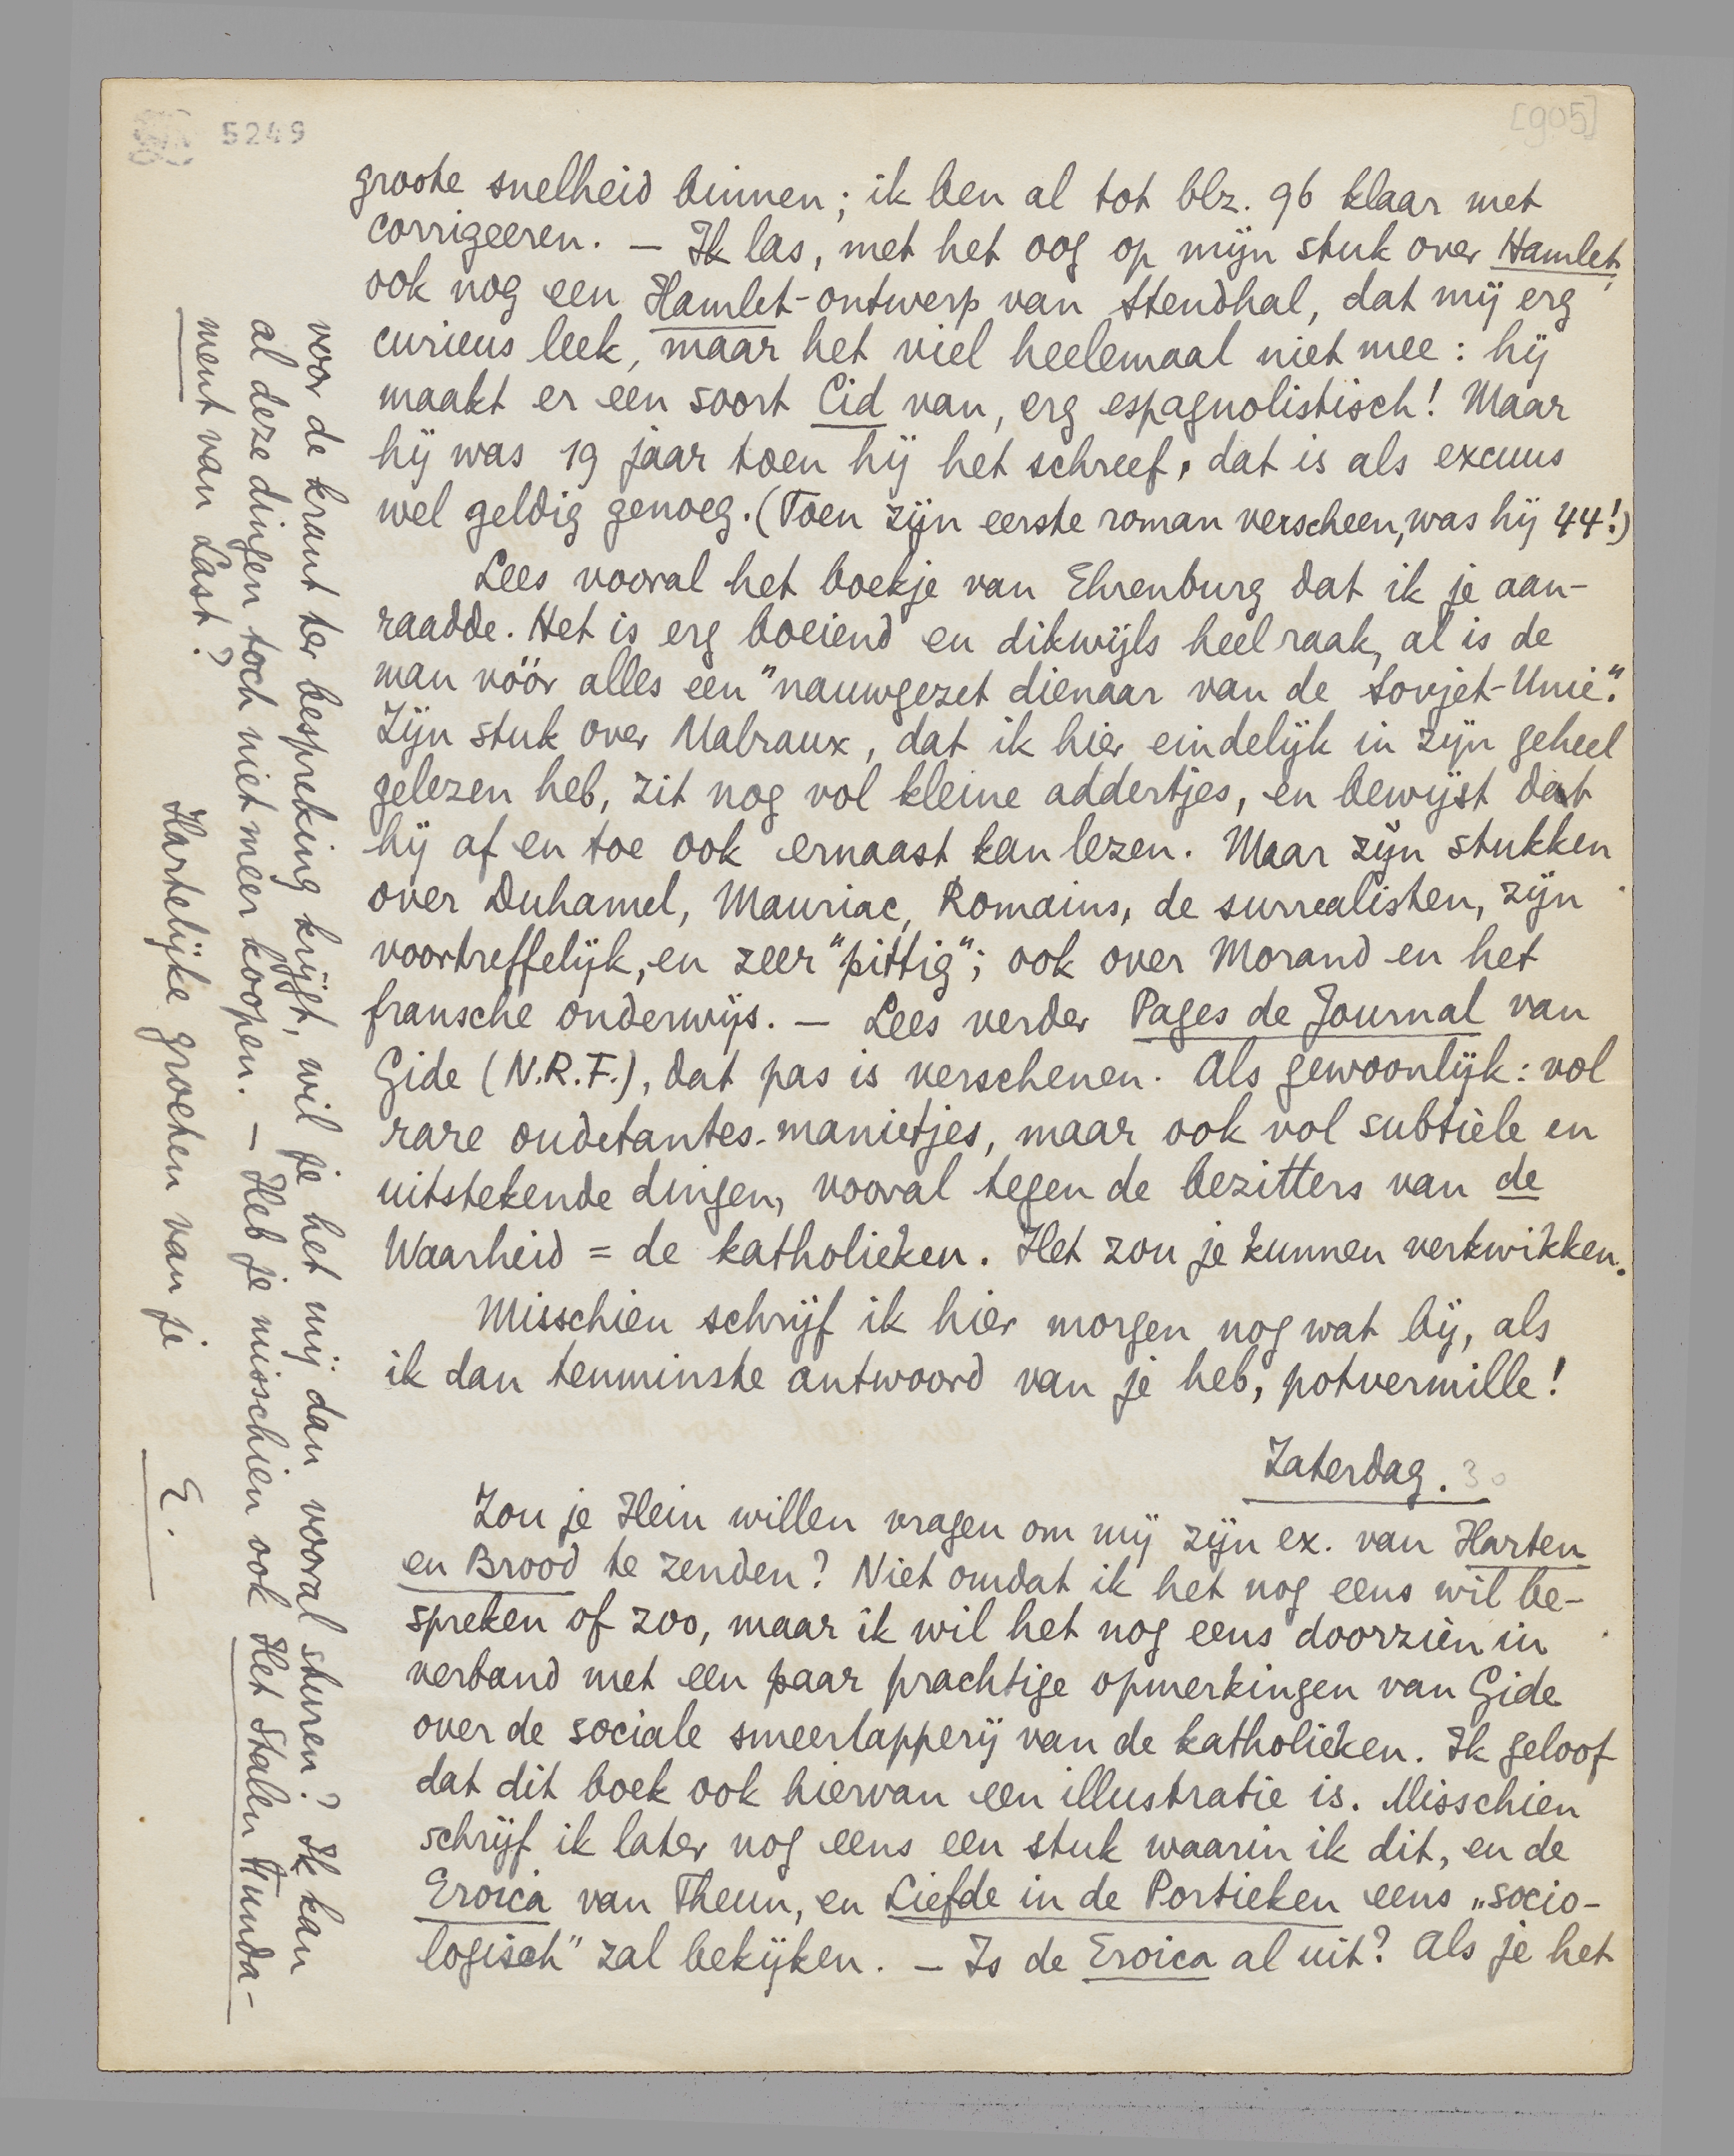 5249
[905]
groote snelheid binnen; ik ben al tot blz. 96 klaar met
corrigeeren. — Ik las, met het oog op mijn stuk over Hamlet,
ook nog een Hamlet-ontwerp van Stendhal, dat mij erg
curieus leek, maar het viel heelemaal niet mee: hij
maakt er een soort Cid van, erg espagnolistisch! Maar
hij was 19 jaar toen hij het schreef, dat is als excuus
wel geldig genoeg. (Toen zijn eerste roman verscheen, was hij 44!)
Lees vooral het boekje van Ehrenburg dat ik je aan-
raadde. Het is erg boeiend en dikwijls heel raak, al is de
man vóór alles een "nauwgezet dienaar van de Sovjet-Unie".
Zijn stuk over Malraux, dat ik hier eindelijk in zijn geheel
gelezen heb, zit nog vol kleine addertjes, en bewijst dat
hij af en toe ook ernaast kan lezen. Maar zijn stukken
over Duhamel, Mauriac, Romains, de surrealisten, zijn
voortreffelijk, en zeer "pittig"; ook over Morand en het
fransche onderwijs. — Lees verder Pages de Journal van
Gide (N.R.F.), dat pas is verschenen. Als gewoonlijk: vol
rare oudetantes-manietjes, maar ook vol subtiele en
uitstekende dingen, vooral tegen de bezitters van de
Waarheid = de katholieken. Het zou je kunnen verkwikken.
Misschien schrijf ik hier morgen nog wat bij, als
ik dan tenminste antwoord van je heb, potvermille!
Zaterdag. 30
Zou je Hein willen vragen om mij zijn ex. van Harten
en Brood te zenden? Niet omdat ik het nog eens wil be-
spreken of zoo, maar ik wil het nog eens doorzien in
verband met een paar prachtige opmerkingen van Gide
over de sociale smeerlapperij van de katholieken. Ik geloof
dat dit boek ook hiervan een illustratie is. Misschien
schrijf ik later nog eens een stuk waarin ik dit, en de
Eroica van Theun, en Liefde in de Portieken eens „socio-
logisch" zal bekijken. — Is de Eroica al uit? Als je het
voor de krant ter bespreking krijgt, wil je het mij dan vooral sturen? Ik kan
al deze dingen toch niet meer koopen. — Heb je misschien ook Het Stalen Funda-
ment van Last?
Hartelijke groeten van je
E.